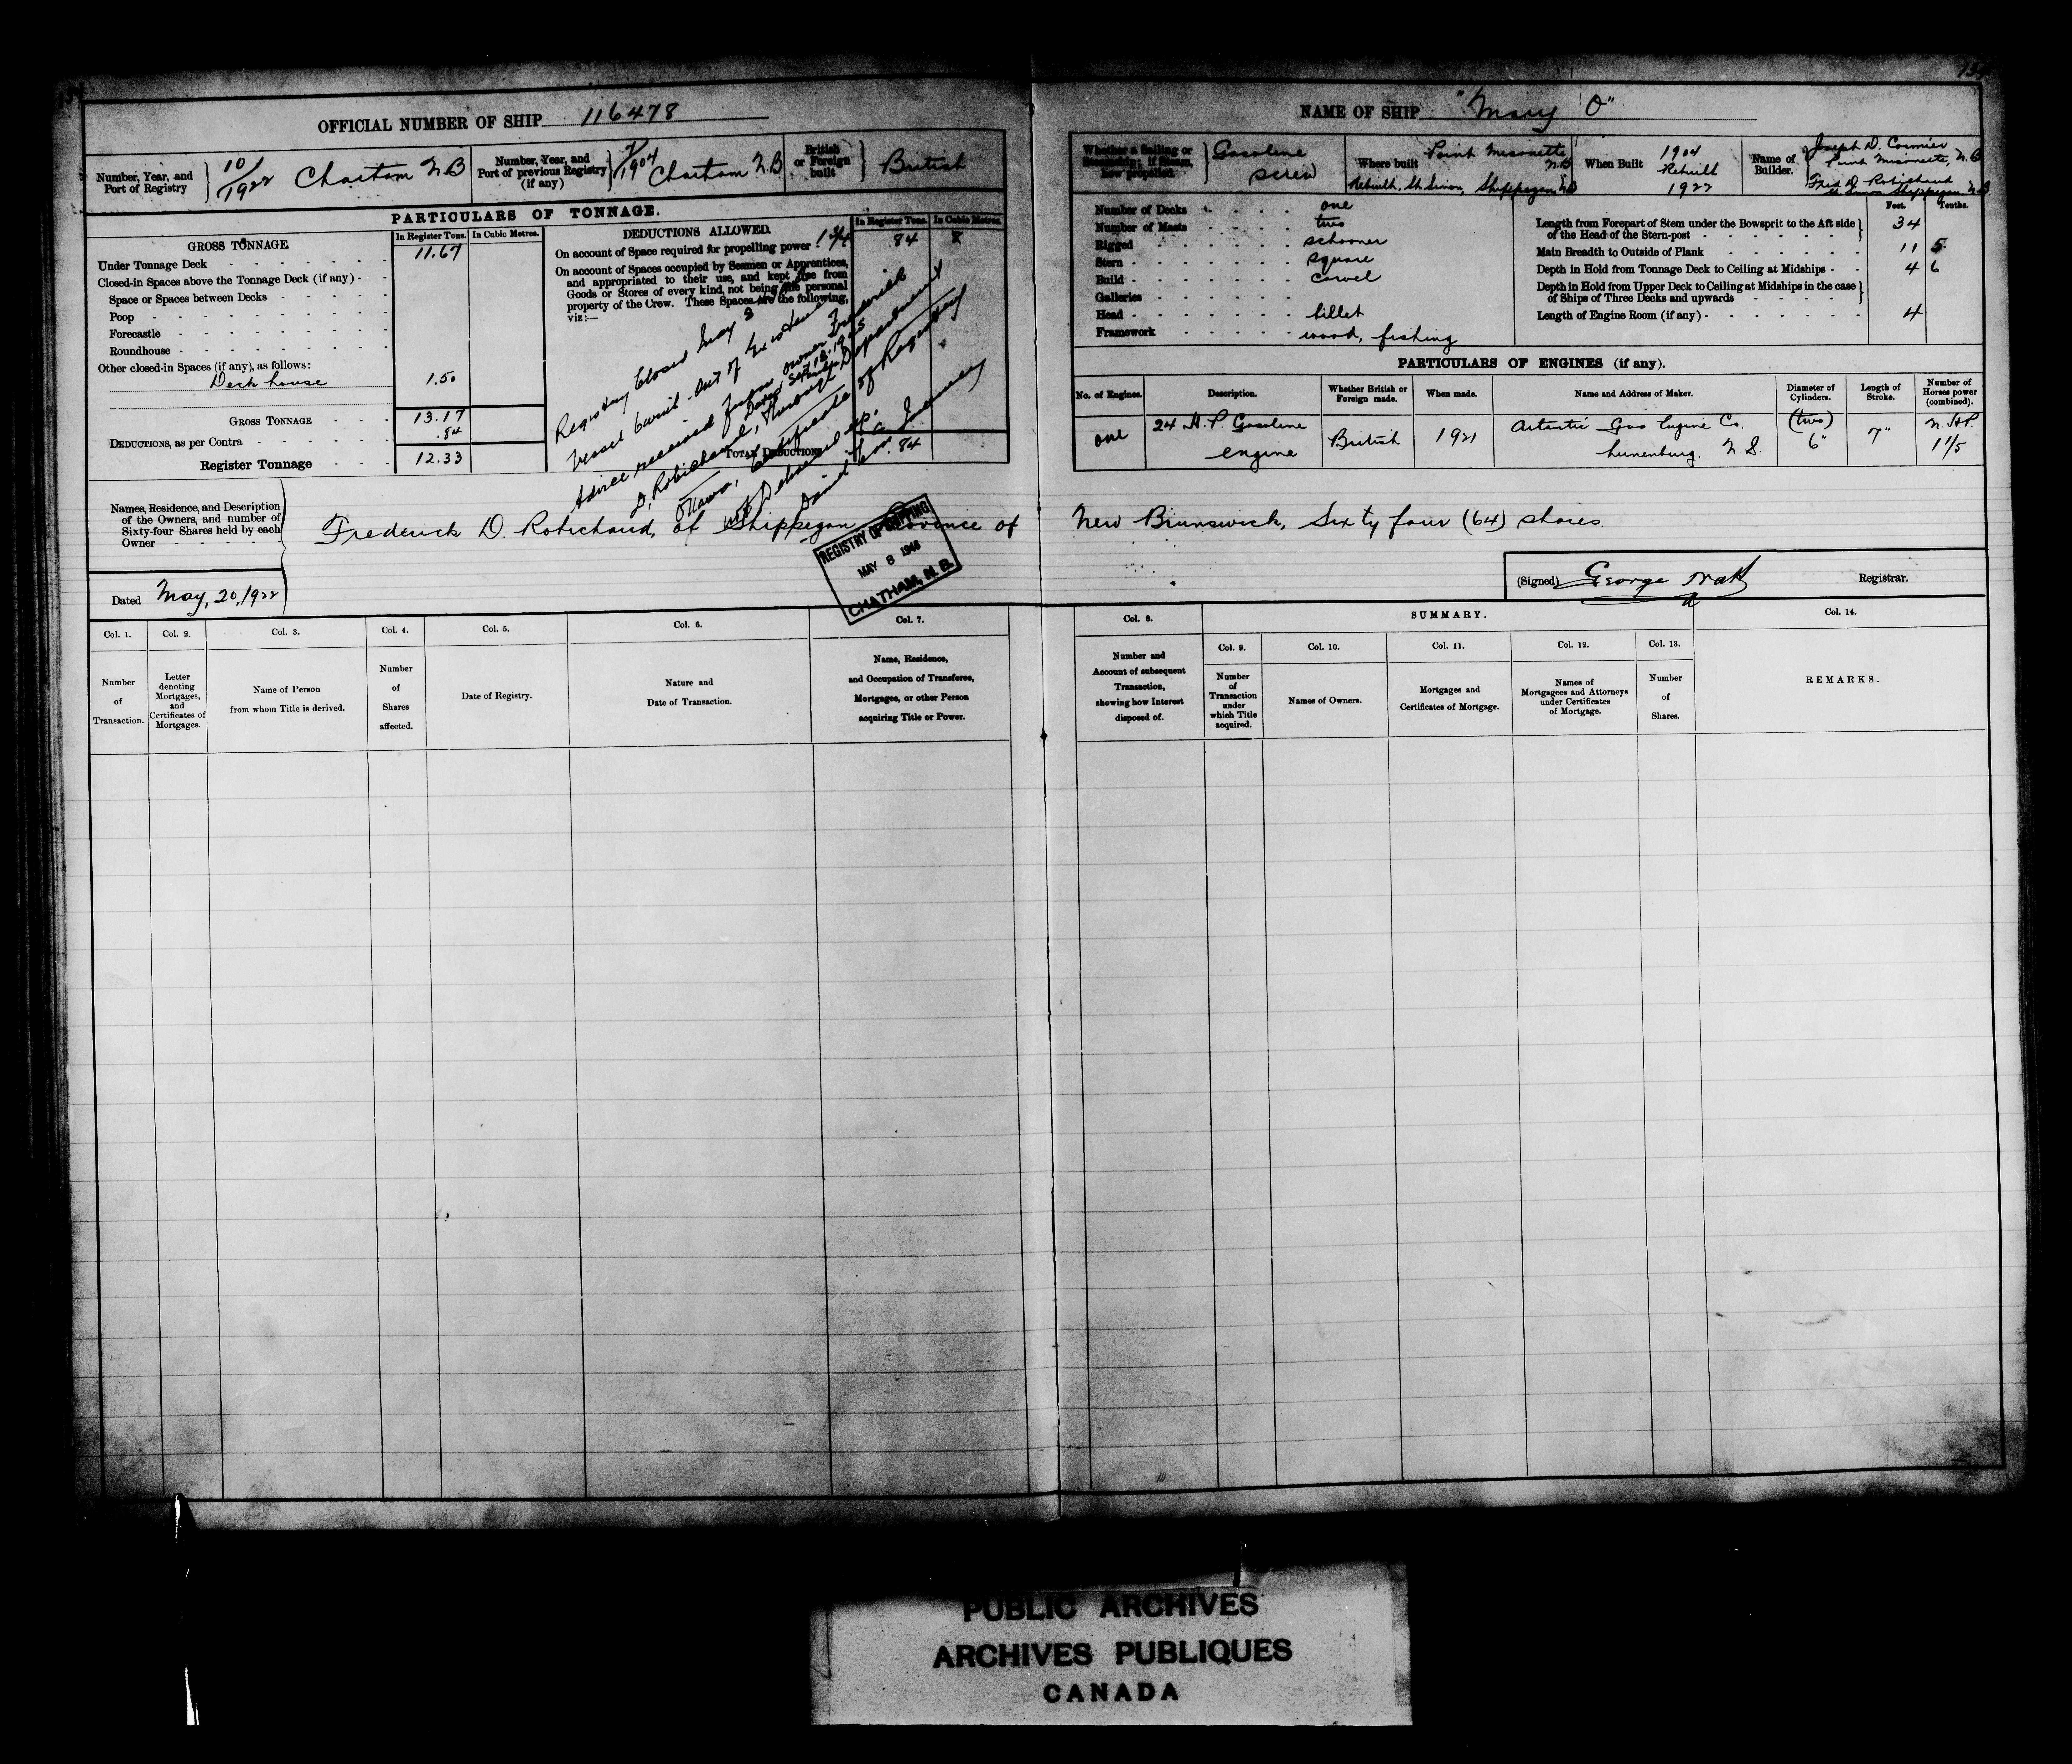 OFFICIAL NUMBER OF SHIP 116478
Number, Year, and Port of Registry 10/1922 Chatham N.B
Number, Year, and Port of previous Registry (if any) 7/1904 Chatham N.B
British or Foreign built British
PARTICULARS OF TONNAGE.
GROSS TONNAGE. In Register Tons. In Cubic Metres.
Under Tonnage Deck 11.67
Closed-in Spaces above the Tonnage Deck (if any)
Space or Spaces between Decks
Poop
Forecastle
Roundhouse
Other closed-in Spaces (if any), as follows:
Deck house 1.50
GROSS TONNAGE 13.17
DEDUCTIONS, as per Contra .84
Register Tonnage 12.33
DEDUCTIONS ALLOWED. In Register Tons. In Cubic Metres.
On account of Space required for propelling power 84
On account of Spaces occupied by Seamen or Apprentices,
and appropriated to their use, and kept free from
Goods or Stores of every kind, not being the personal
property of the Crew. These Spaces are the following,
viz:—
TOTAL DEDUCTIONS .84
Registry Closed May 8
Vessel burnt. out of Existence
Advice received from owner Frederick
Dated Sept 18. 19
D. Robichaud, through Department
Ottawa, Certificate of Registry
not Delivered up.
REGISTRY OF SHIPPING
MAY 8 1946
CHATHAM, N. B.
Names, Residence, and Description
of the Owners, and number of
Sixty-four Shares held by each
Owner
Frederick D. Robichaud, of Shippegan Province of
Dated May, 20, 1922
Col. 1. Col. 2. Col. 3. Col. 4. Col. 5. Col. 6. Col. 7.
Number of Transaction.
Letter denoting Mortgages, and Certificates of Mortgages.
Name of Person from whom Title is derived.
Number of Shares affected.
Date of Registry.
Nature and Date of Transaction.
Name, Residence, and Occupation of Transferee, Mortgagee, or other Person acquiring Title or Power.
NAME OF SHIP "Mary O"
Whether a Sailing or Steamship; if Steam, how propelled. Gasoline screw
Where built Point Misonette N.B
Rebuilt, St. Simon, Shippegan N.B
When Built 1904 Rebuilt 1922
Name of Builder. Joseph D. Cormier
Point Misonette, N.B
Fred D. Robichaud
St. Simon Shippegan N.B
Number of Decks one
Number of Masts two
Rigged schooner
Stern square
Build carvel
Galleries
Head billet
Framework wood, fishing
Feet. Tenths.
Length from Forepart of Stem under the Bowsprit to the Aft side of the Head of the Stern-post 34
Main Breadth to Outside of Plank 11 5
Depth in Hold from Tonnage Deck to Ceiling at Midships 4 6
Depth in Hold from Upper Deck to Ceiling at Midships in the case of Ships of Three Decks and upwards
Length of Engine Room (if any) 4
PARTICULARS OF ENGINES (if any).
No. of Engines. Description. Whether British or Foreign made. When made. Name and Address of Maker. Diameter of Cylinders. Length of Stroke. Number of Horses power (combined).
one 24 H.P. Gasoline engine British 1921 Atlantic Gas Engine Co. Lunenburg. N.S. (two) 6" 7" N.H.P. 1 1/5
New Brunswick, Sixty four (64) shares
(Signed) George Registrar.
Col. 8. SUMMARY. Col. 14.
Col. 9. Col. 10. Col. 11. Col. 12. Col. 13.
Number and Account of subsequent Transaction, showing how Interest disposed of.
Number of Transaction under which Title acquired.
Names of Owners.
Mortgages and Certificates of Mortgage.
Names of Mortgagees and Attorneys under Certificates of Mortgage.
Number of Shares.
REMARKS.
PUBLIC ARCHIVES
ARCHIVES PUBLIQUES
CANADA